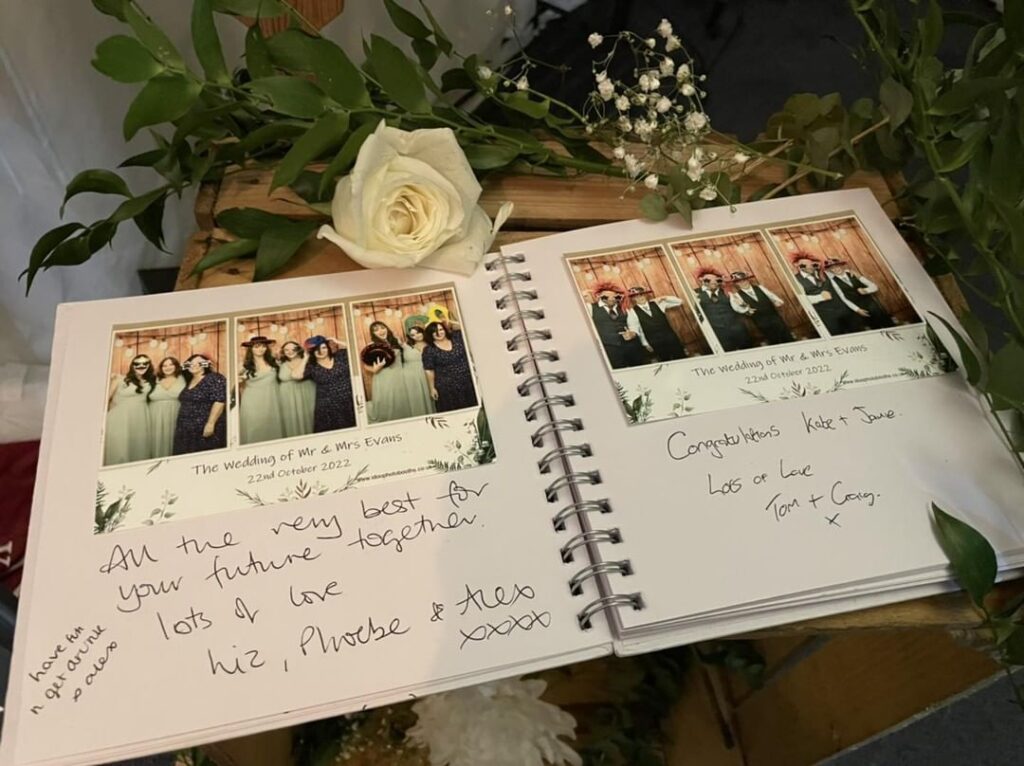 The Wedding of Mr & Mrs Evans
22nd October 2022
All the very best for
your future together.
lots of love
Liz, Phoebe & Alex
xxxx
have fun
n get drunk
x alex
The Wedding of Mr & Mrs Evans
22nd October 2022
Congratulations Kate + Jamie.
Lots of Love
Tom + Craig.
x